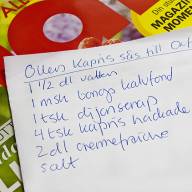 MAGAZIN
MOMEN
Ollers Kapris sås till Oxf
1 1/2 dl vatten
1 msk bong kalvfond
1 tsk dijonsenap
4 tsk kapris hackade
2 dl cremefraiche
salt